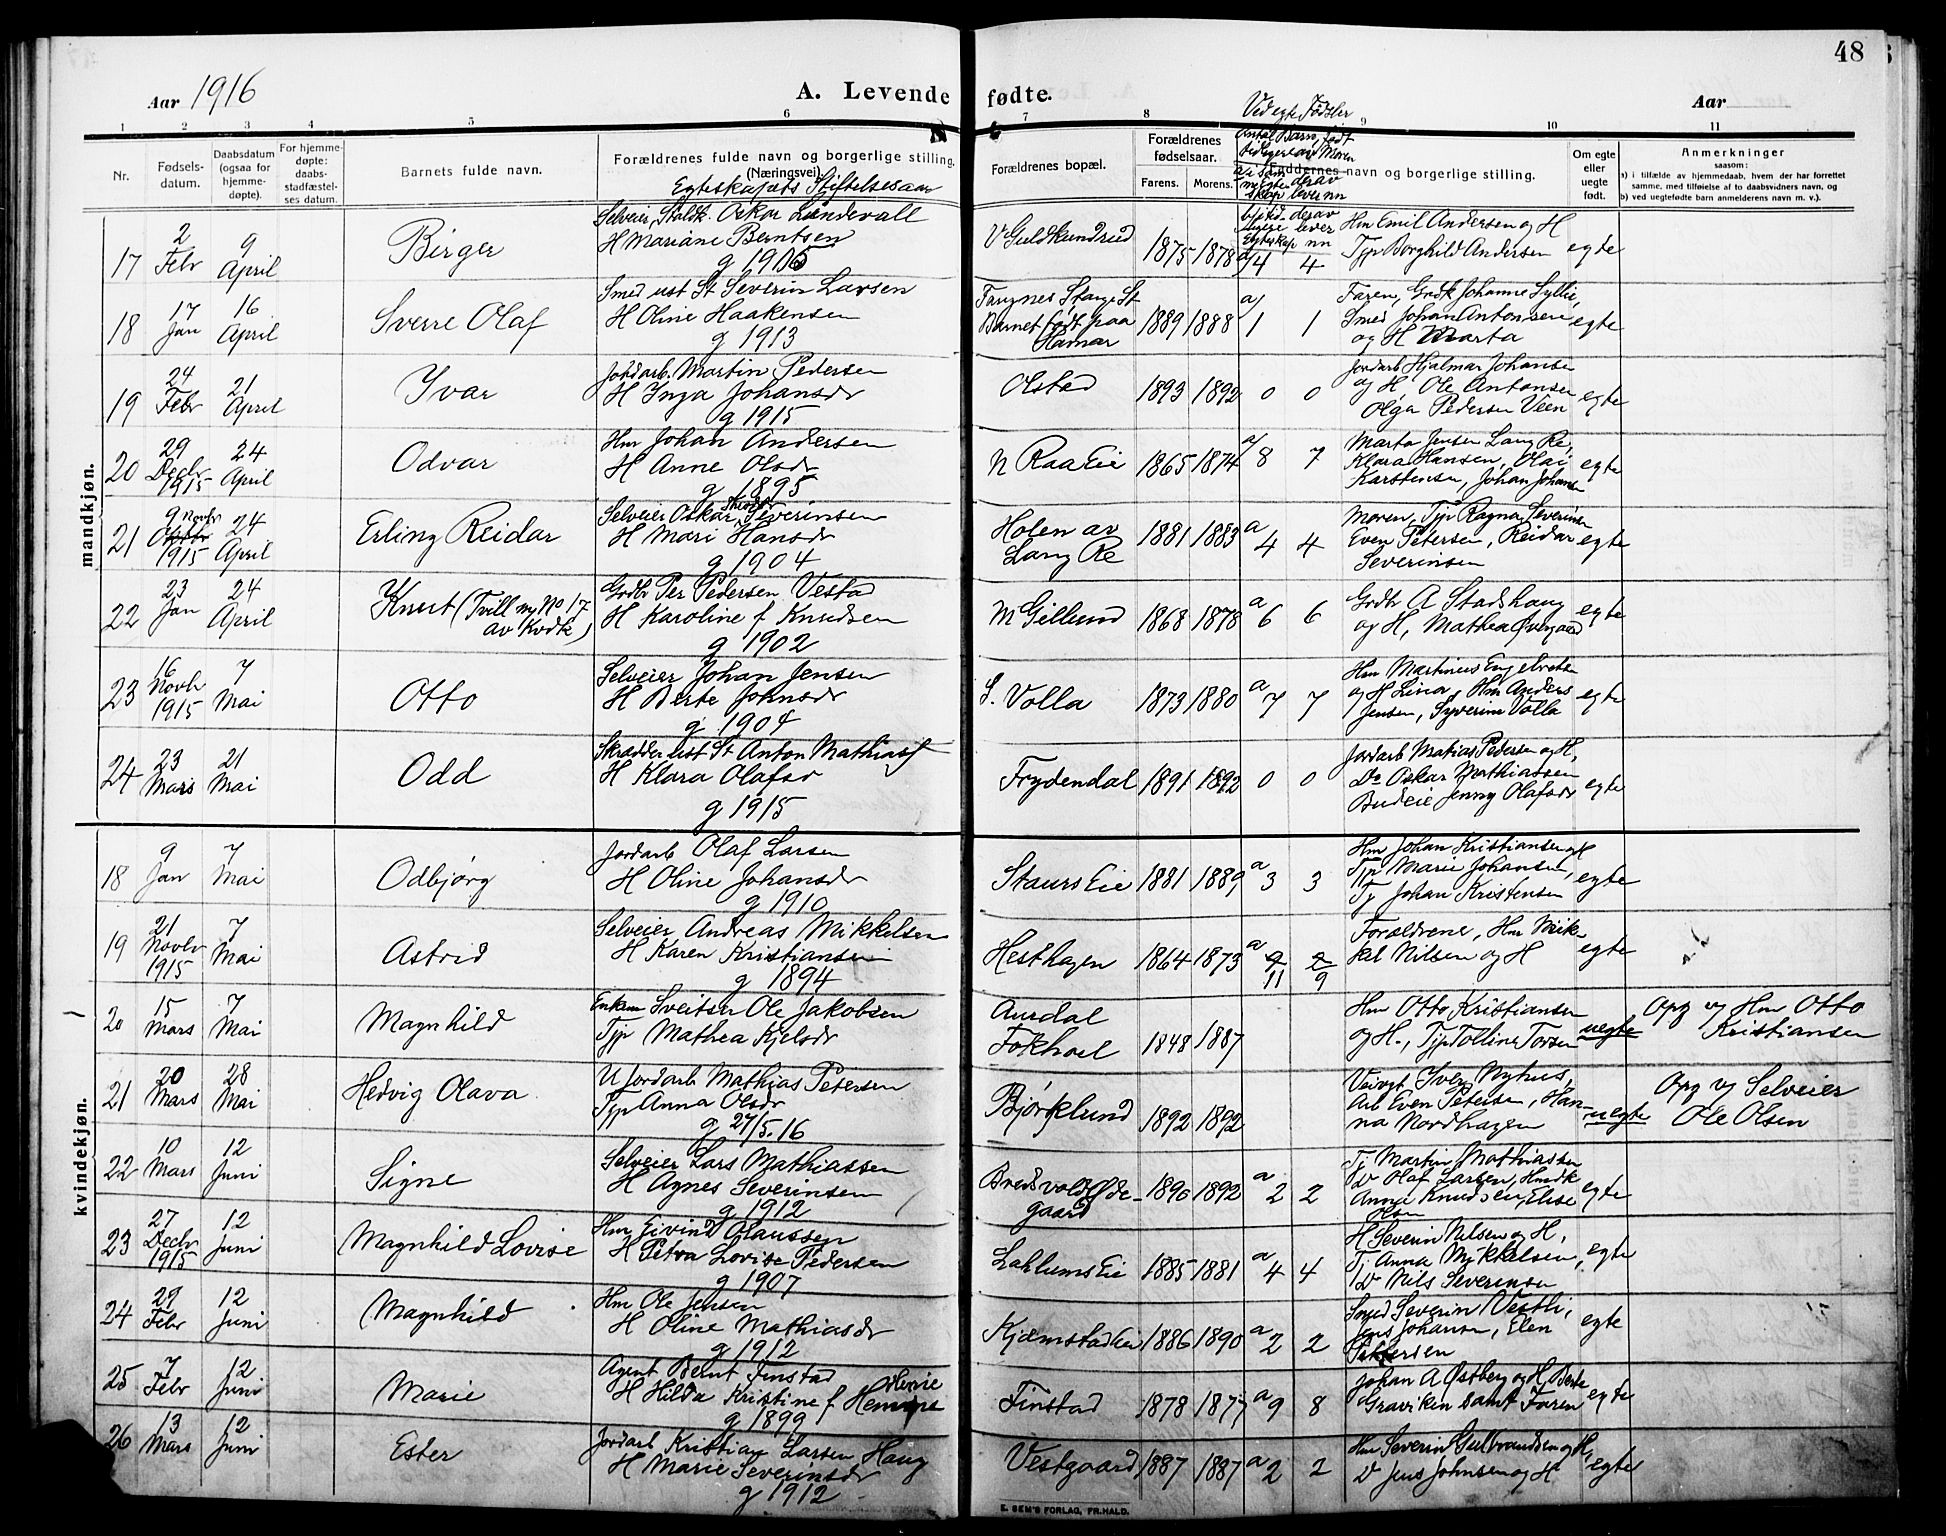 48
Aar 1916
A. Levende fødte.
Aar
Ved egte Fødsler
1 2 3 4 5 6 7 8 9 10 11
Nr.
Fødsels-
datum.
Daabsdatum
(ogsaa for
hjemme-
døpte).
For hjemme-
døpte:
daabs-
stadfæstel-
ses datum.
Barnets fulde navn.
Forældrenes fulde navn og borgerlige stilling.
(Næringsvei).
Egteskapets Stiftelsesaar
Forældrenes bopæl.
Forældrenes
fødselsaar.
Farens. Morens.
Faddernes navn og borgerlige stilling.
Om egte
eller
uegte
født.
Anmerkninger
saasom:
a) i tilfælde av hjemmedaab, hvem der har forrettet
samme, med tilføielse af to daabsvidners navn, og
b) ved uegtefødte barn anmelderens navn m. v.).
mandkjøn.
17
2
Febr
9
April
Birger
Selveier, Staldk. Oskar Lundevall
H Mariane Berntsen
g 1905
V Guldkundrud
1875 1878 a/4 4
Hm Emil Andersen og H
Tjp Borghild Andersen
egte
18
17
Jan
16
April
Sverre Olaf
Smed ust St Severin Larsen
H Oline Haakensen
g 1913
Tangnes Stange St
Barnet født paa
Hamar
1889 1888 a/1 1
Faren, Grdk Johanne Lyllie,
Smed Johan Antonsen
og H Marta
egte
19
24
Febr
21
April
Yvar
Jordarb. Martin Pedersen
H Inga Johansdr
g 1915
Olstad
1893 1892 0 0
Jordarb Hjalmar Johansen
og H Ole Antonsen
Olga Pedersen Veen
egte
20
29
Decbr
1915
24
April
Odvar
Hm Johan Andersen
H Anne Olsdr
g 1895
N Raa Eie
1865 1874 a/8 7
Marta Jensen Lang Re,
Klara Hansen, Olai
Karstensen, Johan Johansen
egte
21
9 Novbr
1915
24
April
Erling Reidar
Selveier Oskar Severinsen
H Mari Hansdr
g 1904
Holen av
Lang Re
1881 1883 a 4 4
Moren, Tjp Ragna Severinsen
Even Petersen, Reidar
Severinsen
egte
22
23
Jan
24
April
Knut (Tvill m No 17
av Kvdk)
Grdbr Per Pedersen Vestad
H Karoline f Knudsen
g 1902
M Gillund
1868 1878 a 6 6
Grdbr A Stadshaug
og H, Mathea Øvergaard
egte
23
16
Novbr
1915
7
Mai
Otto
Selveier Johan Jensen
H Berte Johnsdr
g 1904
S. Volla
1873 1880 a 7 7
Hm Martinus Engebretsen
og H Lina, Hm Anders
Jensen, Syverine Volla
egte
24
23
Mars
21
Mai
Odd
Skrædder ust St Anton Mathias
H Klara Olafsdr
g 1915
Frydendal
1891 1892 0 0
Jordarb Matias Pedersen og H,
Do Oskar Mathiassen
Budeie Jenny Olafsdr
egte
kvindekjøn.
18
9
Jan
7
Mai
Odbjørg
Jordarb Olaf Larsen
H Oline Johansdr
g 1910
Staurs Eie
1881 1889 a 3 3
Hm Johan Kristiansen og H
Tjp Marie Johansen,
Tj Johan Kristensen
egte
19
21
Novbr
1915
7
Mai
Astrid
Selveier Andreas Mikkelsen
H Karen Kristiansen
g 1894
Hesthagen
1864 1873 a 11 9
Forældrene, Hm Mik-
kel Nilsen og H
egte
20
15
Mars
7
Mai
Magnhild
Enkem Sveitser Ole Jakobsen
Tjp Mathea Kjelsdr
Aursdal
Fokhoel
1848 1887
Hm Otto Kristiansen
og H., Tjp Tolline Torsen
uegte
Opg v Hm Otto
Kristiansen
21
20
Mars
28
Mai
Hedvig Olava
U Jordarb Mathias Petersen
Tjp Anna Olsdr
g 27/5.16
Bjørklund
1892 1892
Veivgt Iver Nyhus,
Arb Even Petersen, Han-
na Nordhagen
uegte
Opg v Selveier
Ole Olsen
22
10
Mars
12
Juni
Signe
Selveier Lars Mathiassen
H Agnes Severinsen
g 1912
Bredsvold Øde-
gaard
1890 1892 a 2 2
Tj Martin Mathiassen
D Olaf Larsen, Hmdk
Anna Knudsen, Elise
Olsen
egte
23
27
Decbr
1915
12
Juni
Magnhild Lovise
Hm Eivind Olaussen
H Petra Lovise Pedersen
g 1907
Lahlums Eie
1885 1881 a 4 4
H Severin Nilsen og H,
Tj. Anna Mykkelsen,
D Nils Severinsen
egte
24
29
Febr
12
Juni
Magnhild
Hm Ole Jensen
H Oline Mathiasdr
g 1912
Kjæmstad Eie
1886 1890 a 2 2
Smed Severin Vestli,
Jens Johansen, Elen
Pettersen
egte
25
7
Febr
12
Juni
Marie
Agent Bernt Finstad
H Hilda Kristine f
g 1899
Finstad
1878 1877 a 9 8
Johan A Østberg og H, Berte
Graviken samt Faren
egte
26
13
Mars
12
Juni
Ester
Jordarb Kristian Larsen Haug
H Marie Severinsdr
g 1912
Vestgaard
1887 1887 a 2 2
Hm Severin Gulbrandsen og H,
D Jens Johnsen og H
egte
E. SEM'S FORLAG, FR.HALD.